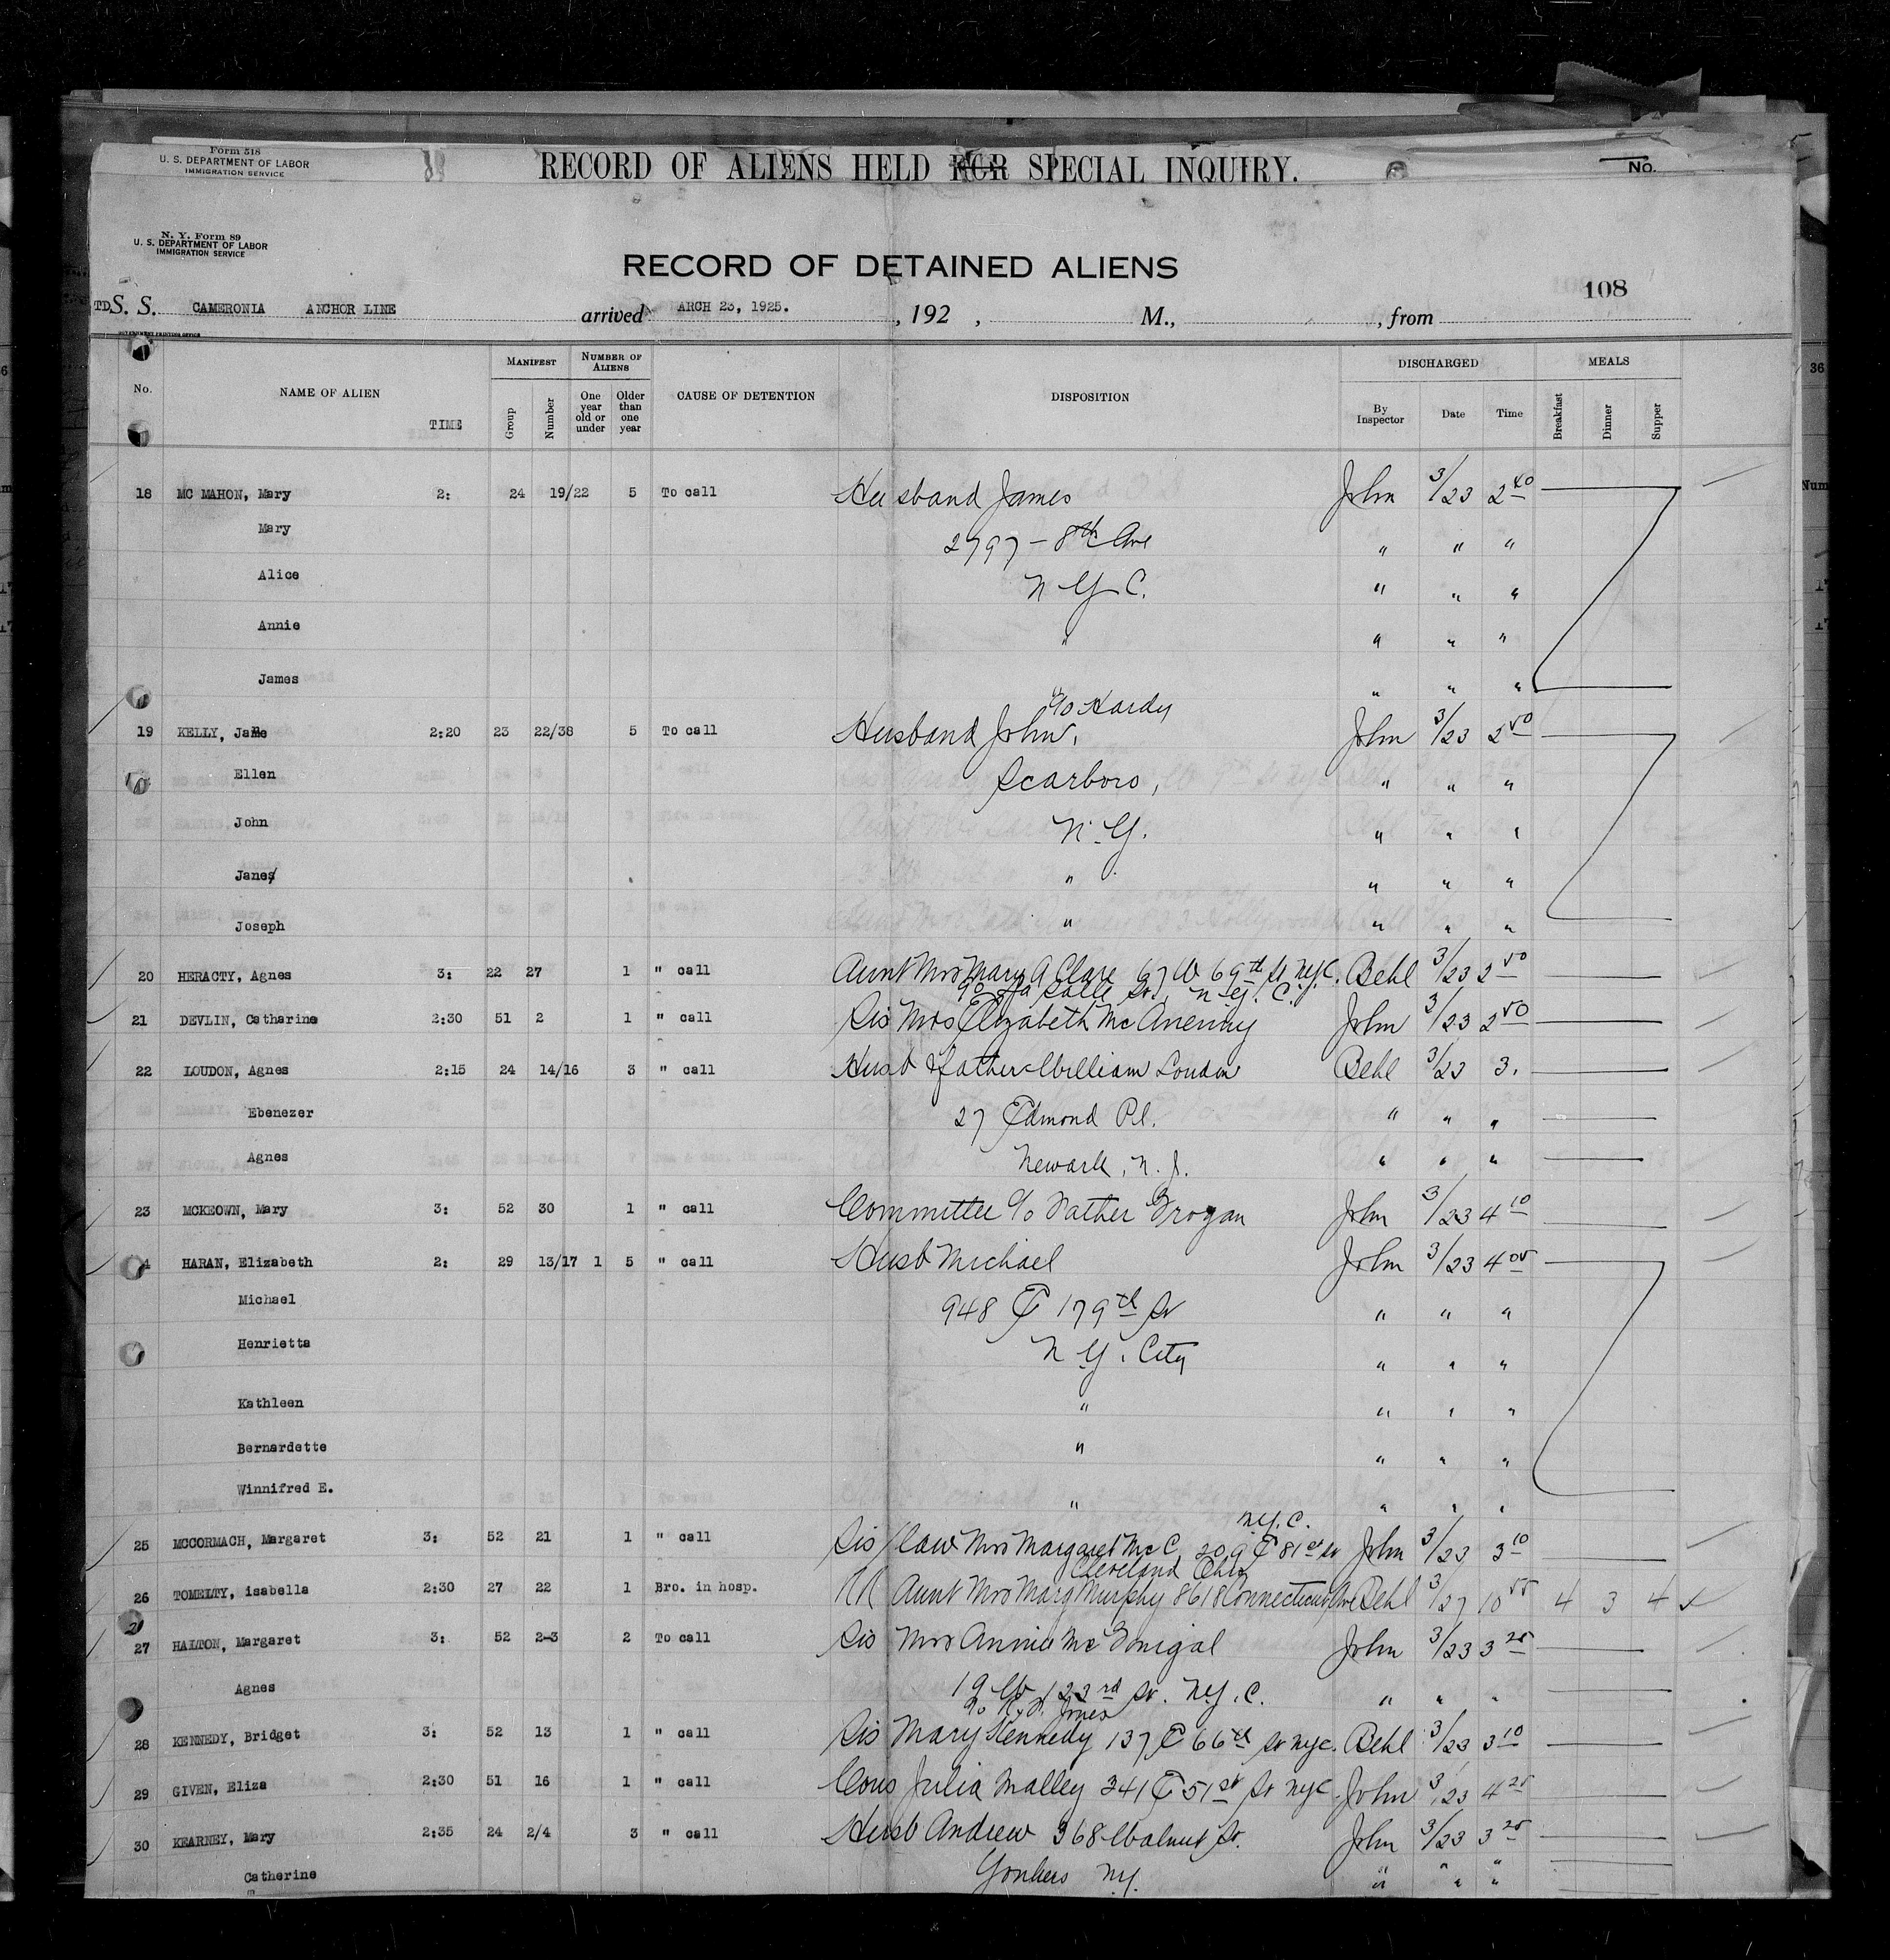 Form 518
U. S. DEPARTMENT OF LABOR
IMMIGRATION SERVICE
RECORD OF ALIENS HELD FOR SPECIAL INQUIRY.
No.
N. Y. Form 89
U. S. DEPARTMENT OF LABOR
IMMIGRATION SERVICE
RECORD OF DETAINED ALIENS
108
TD S. S. CAMERONIA ANCHOR LINE arrived ARCH 23, 1925. , 192 , M., , from
No. NAME OF ALIEN TIME MANIFEST Group Number NUMBER OF ALIENS One year old or under Older than one year CAUSE OF DETENTION DISPOSITION DISCHARGED By Inspector Date Time MEALS Breakfast Dinner Supper
18 MC MAHON, Mary 2: 24 19/22 5 To call Husband James John 3/23 2 40
Mary 2797 - 8th Ave " " "
Alice N Y C. " " "
Annie " " " "
James " " "
c/o Hardy
19 KELLY, Jane 2:20 23 22/38 5 To call Husband John, John 3/23 2 50
Ellen Scarboro, " " "
John N.Y. " " "
Janes " " " "
Joseph " " " "
20 HERACTY, Agnes 3: 22 27 1 " call Aunt Mrs Mary A Clare 67 W 69th St NYC. Behl 3/23 2 50
90 La Salle St., N.Y.C.
21 DEVLIN, Catharine 2:30 51 2 1 " call Sis Mrs Elizabeth McAneniny John 3/23 2 50
22 LOUDON, Agnes 2:15 24 14/16 3 " call Husb & father William Loudon Behl 3/23 3.
Ebenezer 27 Edmond Pl. " " "
Agnes Newark, N.J. " " "
23 MCKEOWN, Mary 3: 52 30 1 " call Committee c/o Father Grogan John 3/23 4 10
4 HARAN, Elizabeth 2: 29 13/17 1 5 " call Husb Michael John 3/23 4 05
Michael 948 E 179th St " " "
Henrietta N.Y. City " " "
Kathleen " " " "
Bernardette " " " "
Winnifred E. " " " "
N.Y.C.
25 MCCORMACH, Margaret 3: 52 21 1 " call Sis/law Mrs Margaret McC 209 E 81st St John 3/23 3 10
Cleveland Ohio
26 TOMELTY, isabella 2:30 27 22 1 Bro. in hosp. RR Aunt Mrs Marg Murphy 8618 Connecticut Ave Behl 3/27 10 55 4 3 4
27 HALTON, Margaret 3: 52 2-3 2 To call Sis Mrs Annie McGonigal John 3/23 3 25
Agnes 19 W 123rd St. N.Y.C. " " "
28 KENNEDY, Bridget 3: 52 13 1 " call Sis Mary Kennedy 137 E 66th St NYC. Behl 3/23 3 10
29 GIVEN, Eliza 2:30 51 16 1 " call Cous Julia Malley 341 E 51st St NYC. John 3/23 4 25
30 KEARNEY, Mary 2:35 24 2/4 3 " call Husb Andrew 368 Walnut St. John 3/23 3 25
Catherine Yonkers NY. " " "